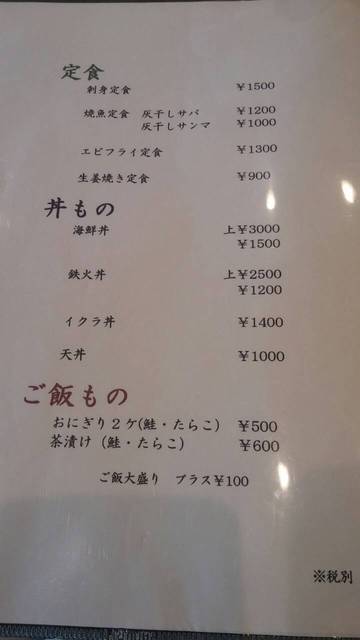 定食
刺身定食 ￥1500
焼魚定食 灰干しサバ ￥1200
灰干しサンマ ￥1000
エビフライ定食 ￥1300
生姜焼き定食 ￥900
丼もの
海鮮丼 上￥3000
￥1500
鉄火丼 上￥2500
￥1200
イクラ丼 ￥1400
天丼 ￥1000
ご飯もの
おにぎり２ケ(鮭・たらこ) ￥500
茶漬け（鮭・たらこ） ￥600
ご飯大盛り プラス￥100
※税別